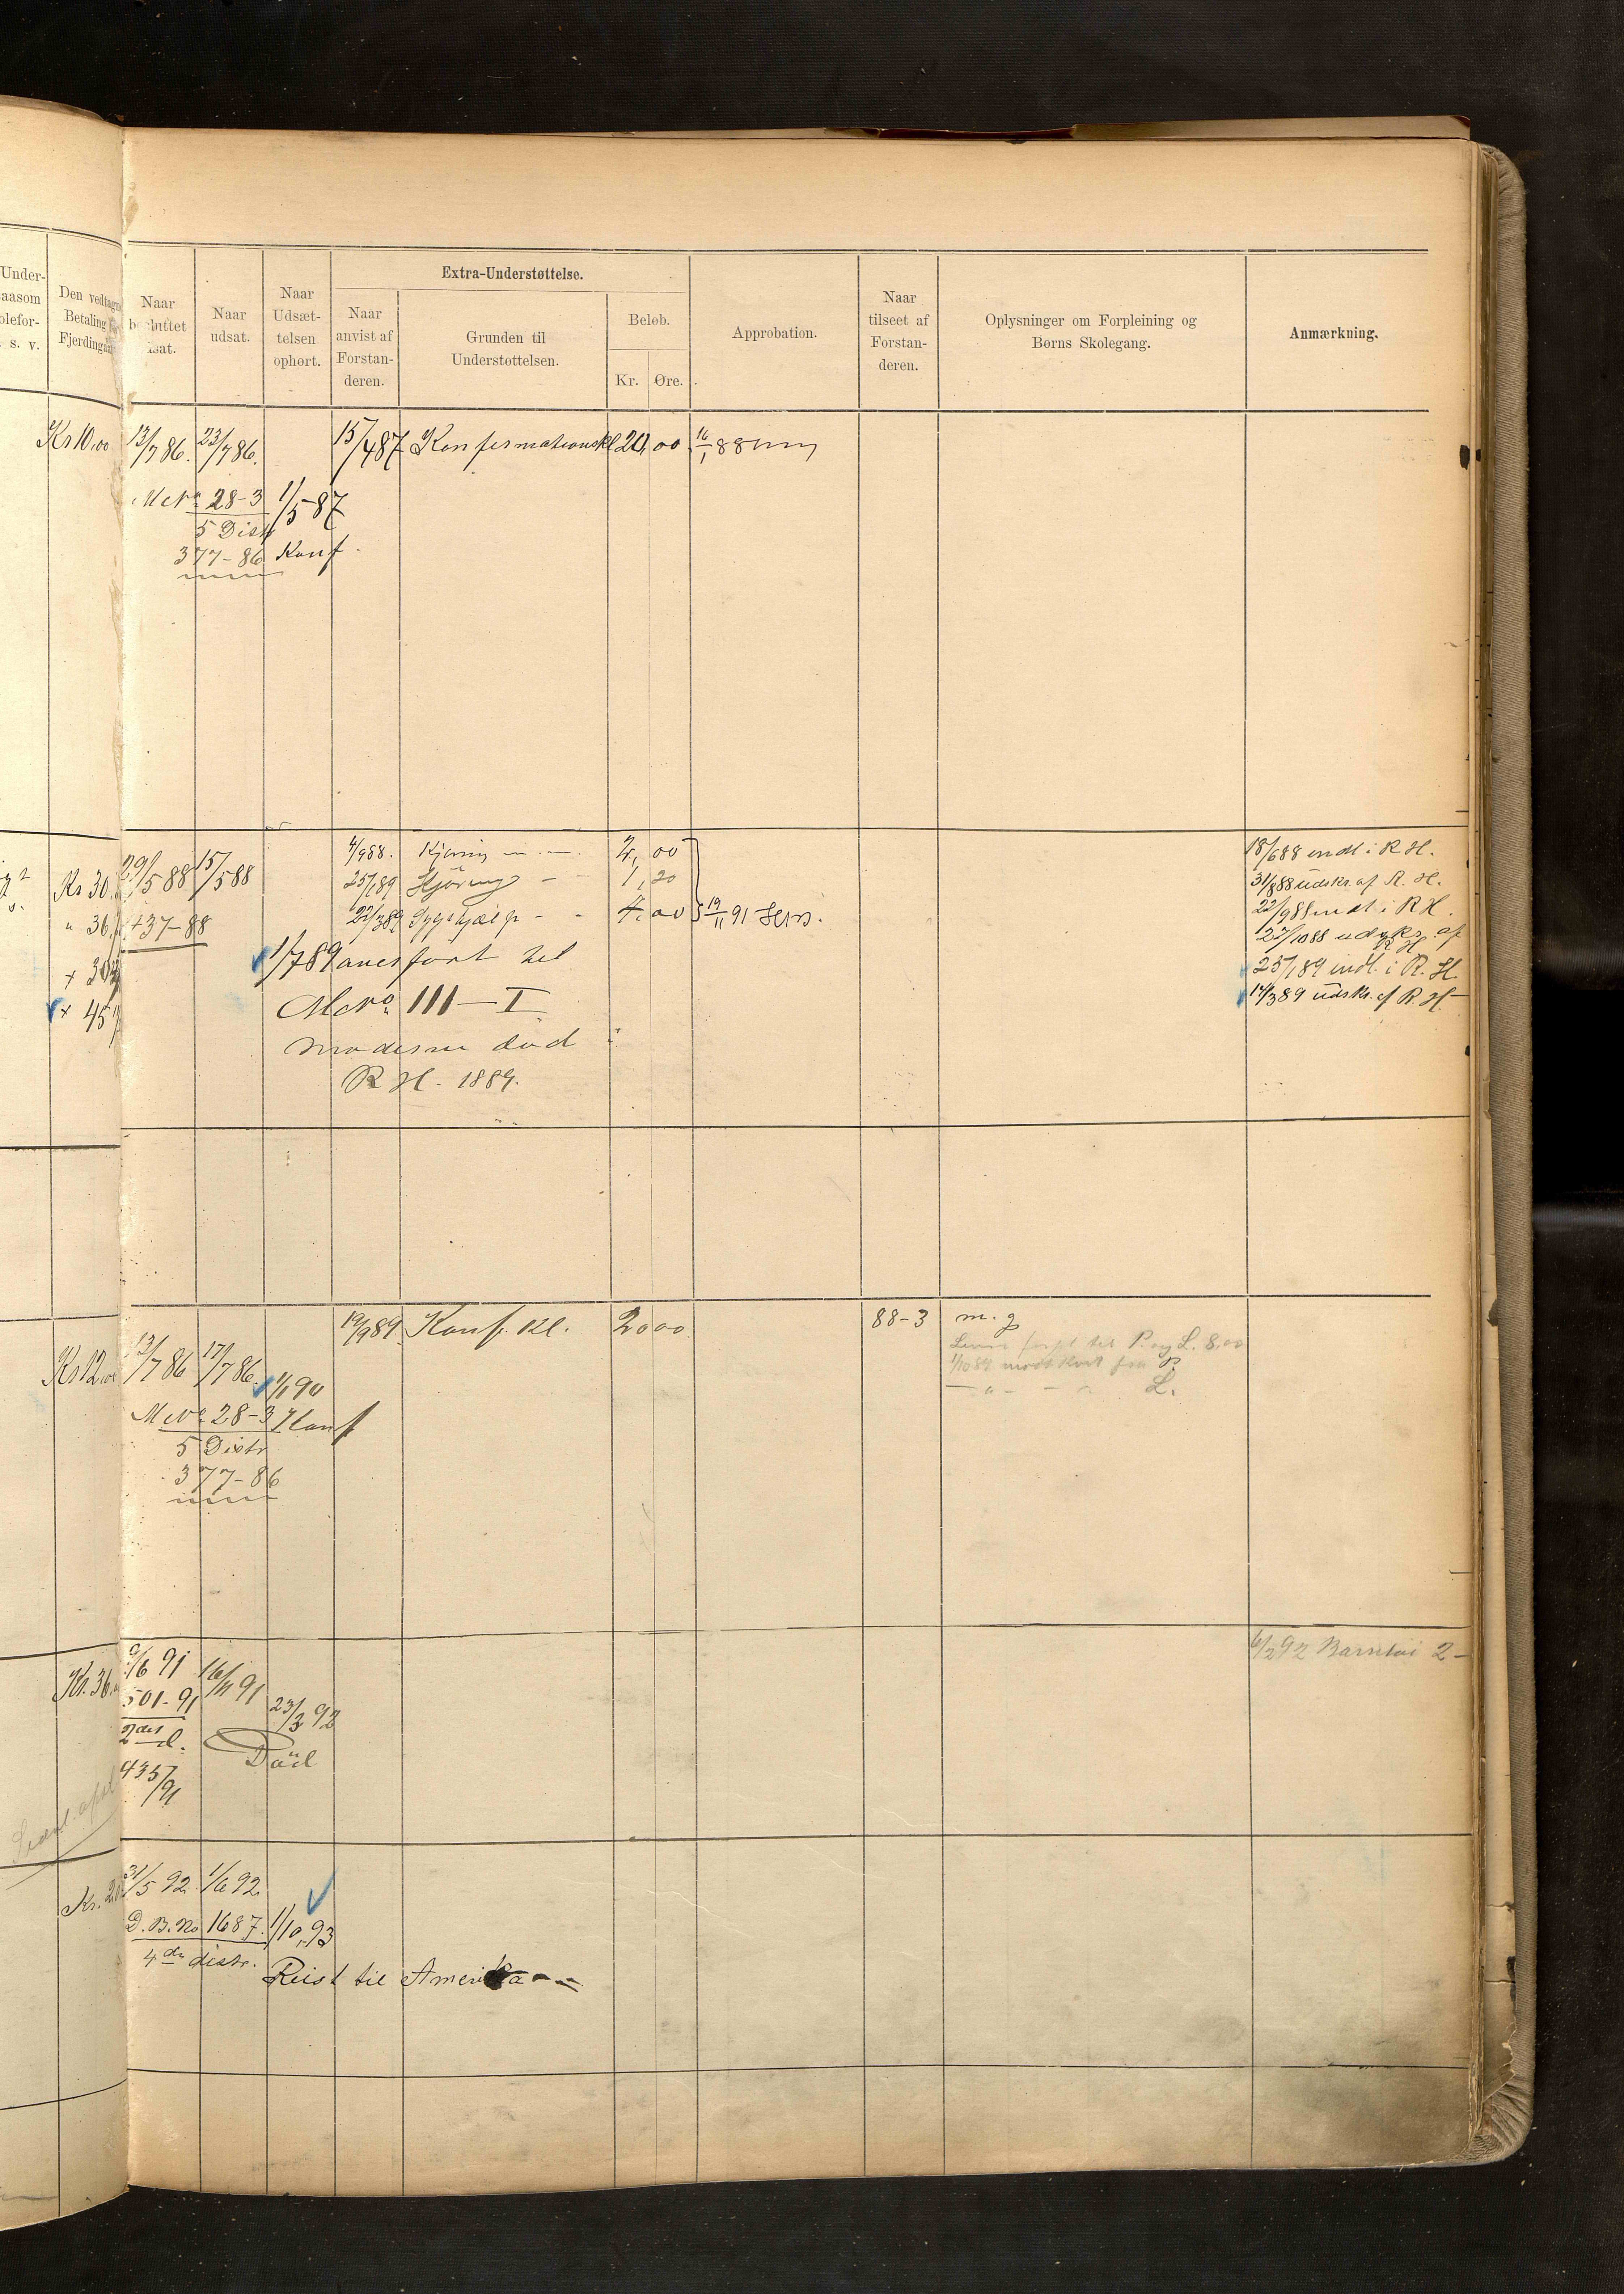 Under-
aasom
olefor-
s. v.
Den vedtagne
Betaling
Fjerdingaar
Naar
besluttet
udsat.
Naar
udsat.
Naar
Udsæt-
telsen
ophørt.
Extra-Understøttelse.
Naar
anvist af
Forstan-
deren.
Grunden til
Understøttelsen.
Beløb.
Kr. Øre.
Approbation.
Naar
tilseet af
Forstan-
deren.
Oplysninger om Forpleining og
Børns Skolegang.
Anmærkning.
Kr 10,00 13/7 86. 23/7 86. 15/4 87 Konfirmationskl 20,00 16/1 88
28-3 1/5 87
5 Distr
377-86 Konf.
Kr 30. 29/5 88 15/5 88 4/9 88. Kjøring 4,00 18/6 88 indl i R H.
25/1 89 Kjøring - 1,20 31/8 88 udskr. af R. H.
" 36. 437-88 22/3 89 Sygehjælp - - 4,00 19/11 91 22/9 88 indl i R H.
27/10 88 udskr. af
R H
1/7 89 overført til 25/1 89 indl. i R. H.
M No III-I 14/3 89 udskr. af R. H.
+ 45
Moderen død i
R H. 1889.
19/9 89 Konf. Kl. 20 00 88-3 m. g
til P. og L. 8,00
Kr 12. 13/7 86 17/7 86. 1/1 90 1/10 89 fra P.
L.
28-3 Konf
5 Distr
377-86
Kr. 36. /6 91 16/11 91 6/2 92 Barntøi 2-
501-91 23/3 92
Död
435/91
Kr. 20 31/5 92. 1/6 92.
D. B. No 1687. 1/10, 93
4de distr.
Reist til Amerika - -